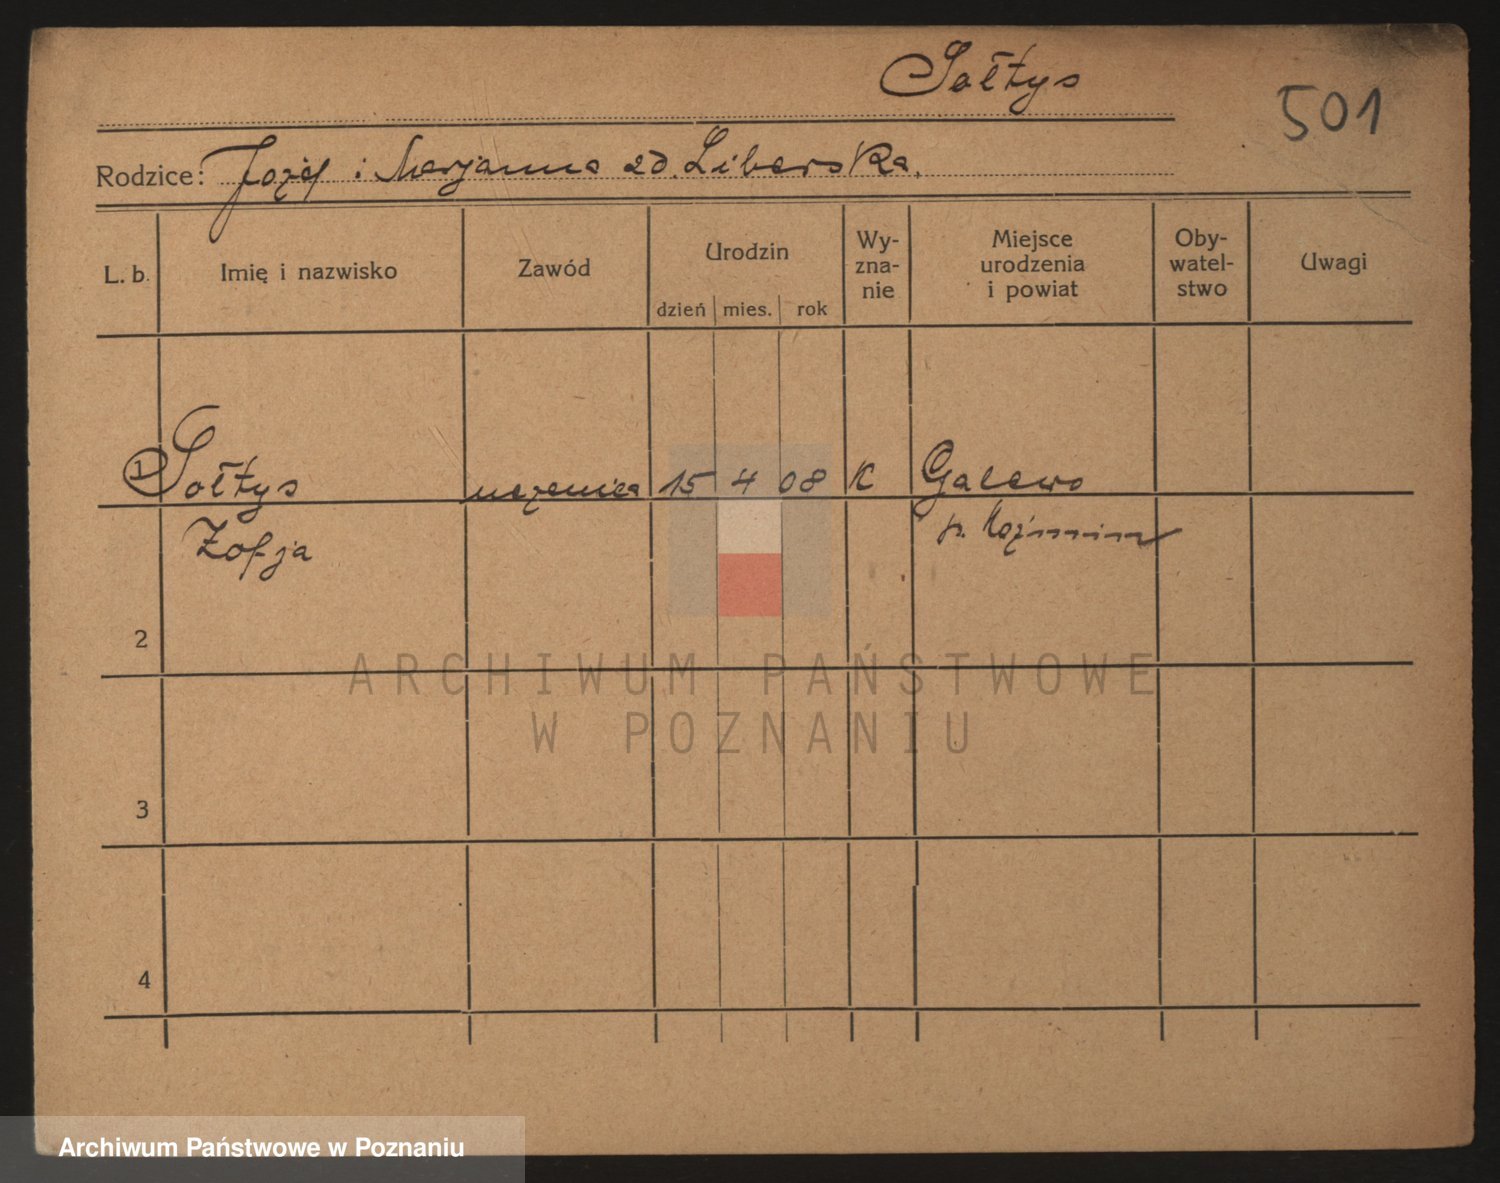 Sołtys
501
Rodzice: Józef i Marjanna zd. Liberska.
L. b. Imię i nazwisko Zawód Urodzin dzień mies. rok Wy-zna-nie Miejsce urodzenia i powiat Oby-watel-stwo Uwagi
1 Sołtys uczenica 15 4 08 K Galewo
Zofja p. Koźmin
2
ARCHIWUM PAŃSTWOWE
W POZNANIU
3
4
Archiwum Państwowe w Poznaniu